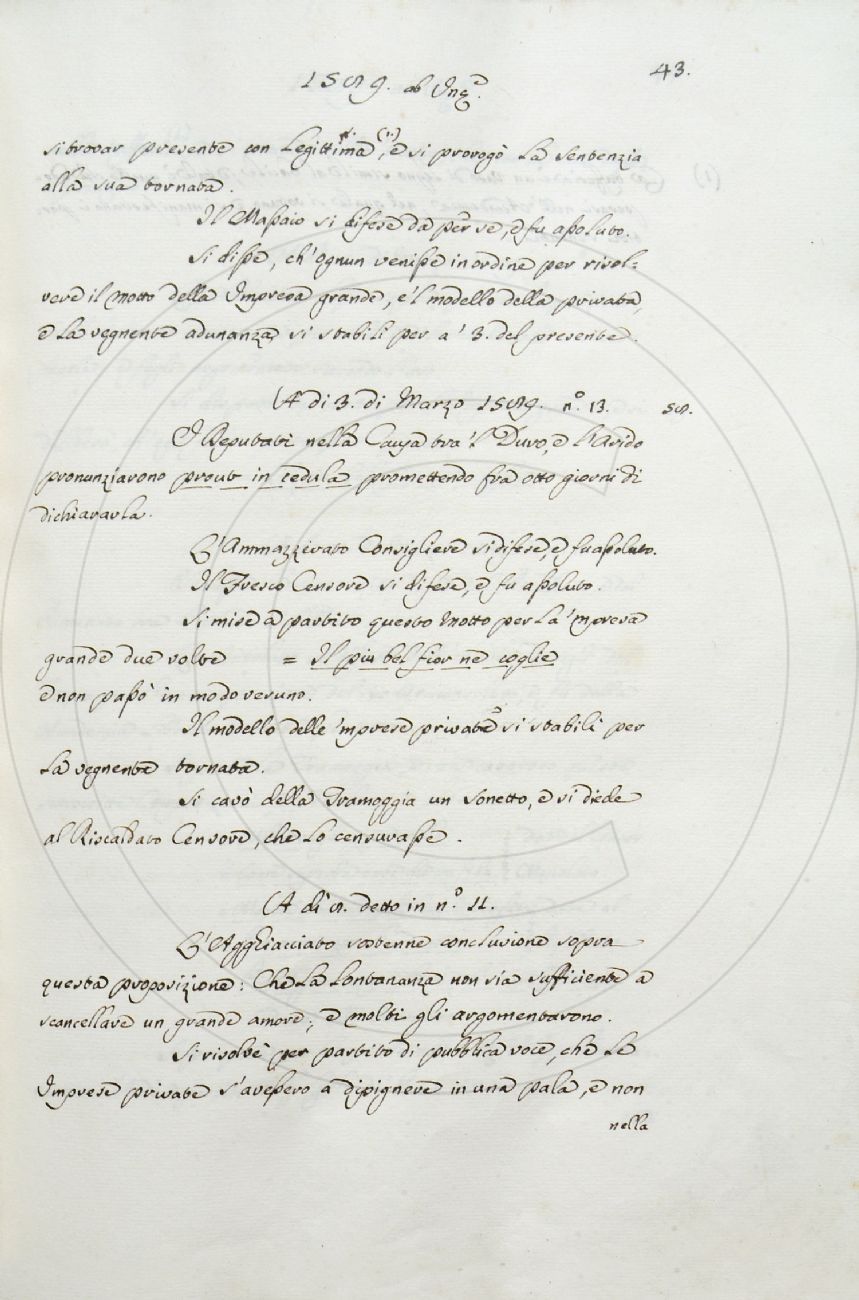 43.
1589. ab Inc.e
si trovar presente con legittima, (1.) e si prorogò la sentenzia
alla sua tornata.
Il Massaio si difese da per se, e fu assoluto.
Si disse, ch'ognun venisse in ordine per risol=
vere il motto della Impresa grande, e 'l modello della privata,
e la vegnente adunanza si stabilì per a' 3. del presente.
A dì 3. di Marzo 1589. n.o 13.
58.
I Deputati nella Causa tra 'l Duro, e l'Arido
pronunziarono prout in cedula promettendo fra otto giorni di
dichiararla.
L'Ammazzerato Consigliere si difese, e fu assoluto.
Il Fresco Censore si difese, e fu assoluto.
Si mise a partito questo motto per la 'mpresa
grande due volte = Il più bel fior ne coglie
e non passò in modo veruno.
Il modello delle 'mprese private si stabilì per
la vegnente tornata.
Si cavò della Tramoggia un sonetto, e si diede
al Riscaldato Censore, che lo censurasse.
A dì 8. detto in n.o 11.
L'Agghiacciato sostenne conclusione sopra
questa proposizione: Che la lontananza non sia sufficiente a
scancellare un grande amore; e molti gli argomentarono.
Si risolvè per partito di pubblica voce, che le
Imprese private s'avessero a dipignere in una pala, e non
nella